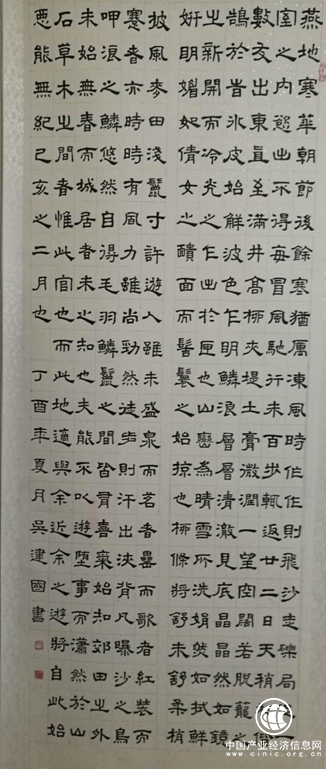 燕地寒華朝節後餘寒猶厲凍風時作作則飛沙走礫局促一
室之內欲出不得每冒風馳行未百步輒返廿二日天稍和偕
數友出東直至滿井高柳夾堤土膏微潤一望空闊若脫籠之
鵠於時冰皮始解波色乍明鱗浪層層清澈見底晶晶然如鏡
之新開而冷光之乍出於匣也山巒為晴雪所洗娟然如拭鮮
妍明媚如倩女之靧面而髻鬟之始掠也柳條將舒未舒柔梢
披風麥田淺鬣寸許遊人雖未盛泉而茗者罍而歌者紅裝而
蹇者亦時時有風力雖尚勁然徒步則汗出浹背凡曝沙之鳥
呷浪之鱗悠然自得毛羽鱗鬣之間皆有喜氣始知郊田之外
未始無春而城居者未之知也夫能不以遊墮事而瀟然於山
石草木之間者惟此官也而此地適與余近余之遊將自此始
惡能無紀己亥之二月也 丁酉年夏月吳建國書
中国产业经济信息网
www.cinic.org.cn